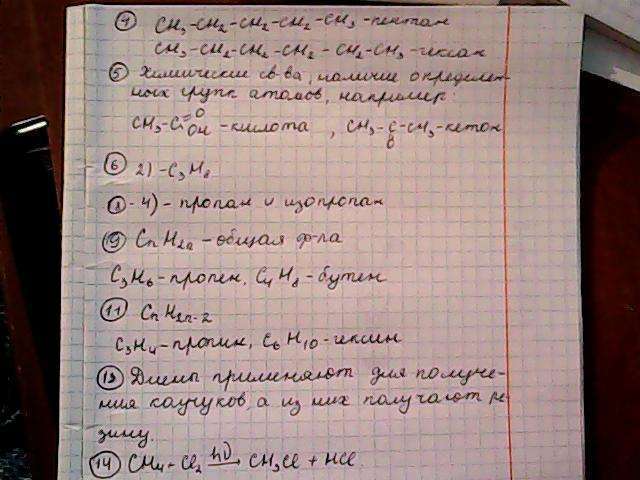 ④ CH₃-CH₂-CH₂-CH₂-CH₃-пентан
CH₃-CH₂-CH₂-CH₂-CH₂-CH₃-гексан
⑤ Химические св-ва, наличие определен-
ных групп атомов, например:
CH₃-C=O OH -кислота, CH₃-C-CH₃-кетон
O
⑥ 2)-C₃H₈
⑧-4)-пропан и изопропан
⑩ CnH2n-общая ф-ла
C₃H₆-пропен, C₄H₈-бутен
⑪ CnH2n-2
C₃H₄-пропин, C₆H₁₀-гексин
Диены применяют для получе-
ния каучуков, а из них получают ре-
зину.
⑭ CH₄+Cl₂ hν→ CH₃Cl + HCl